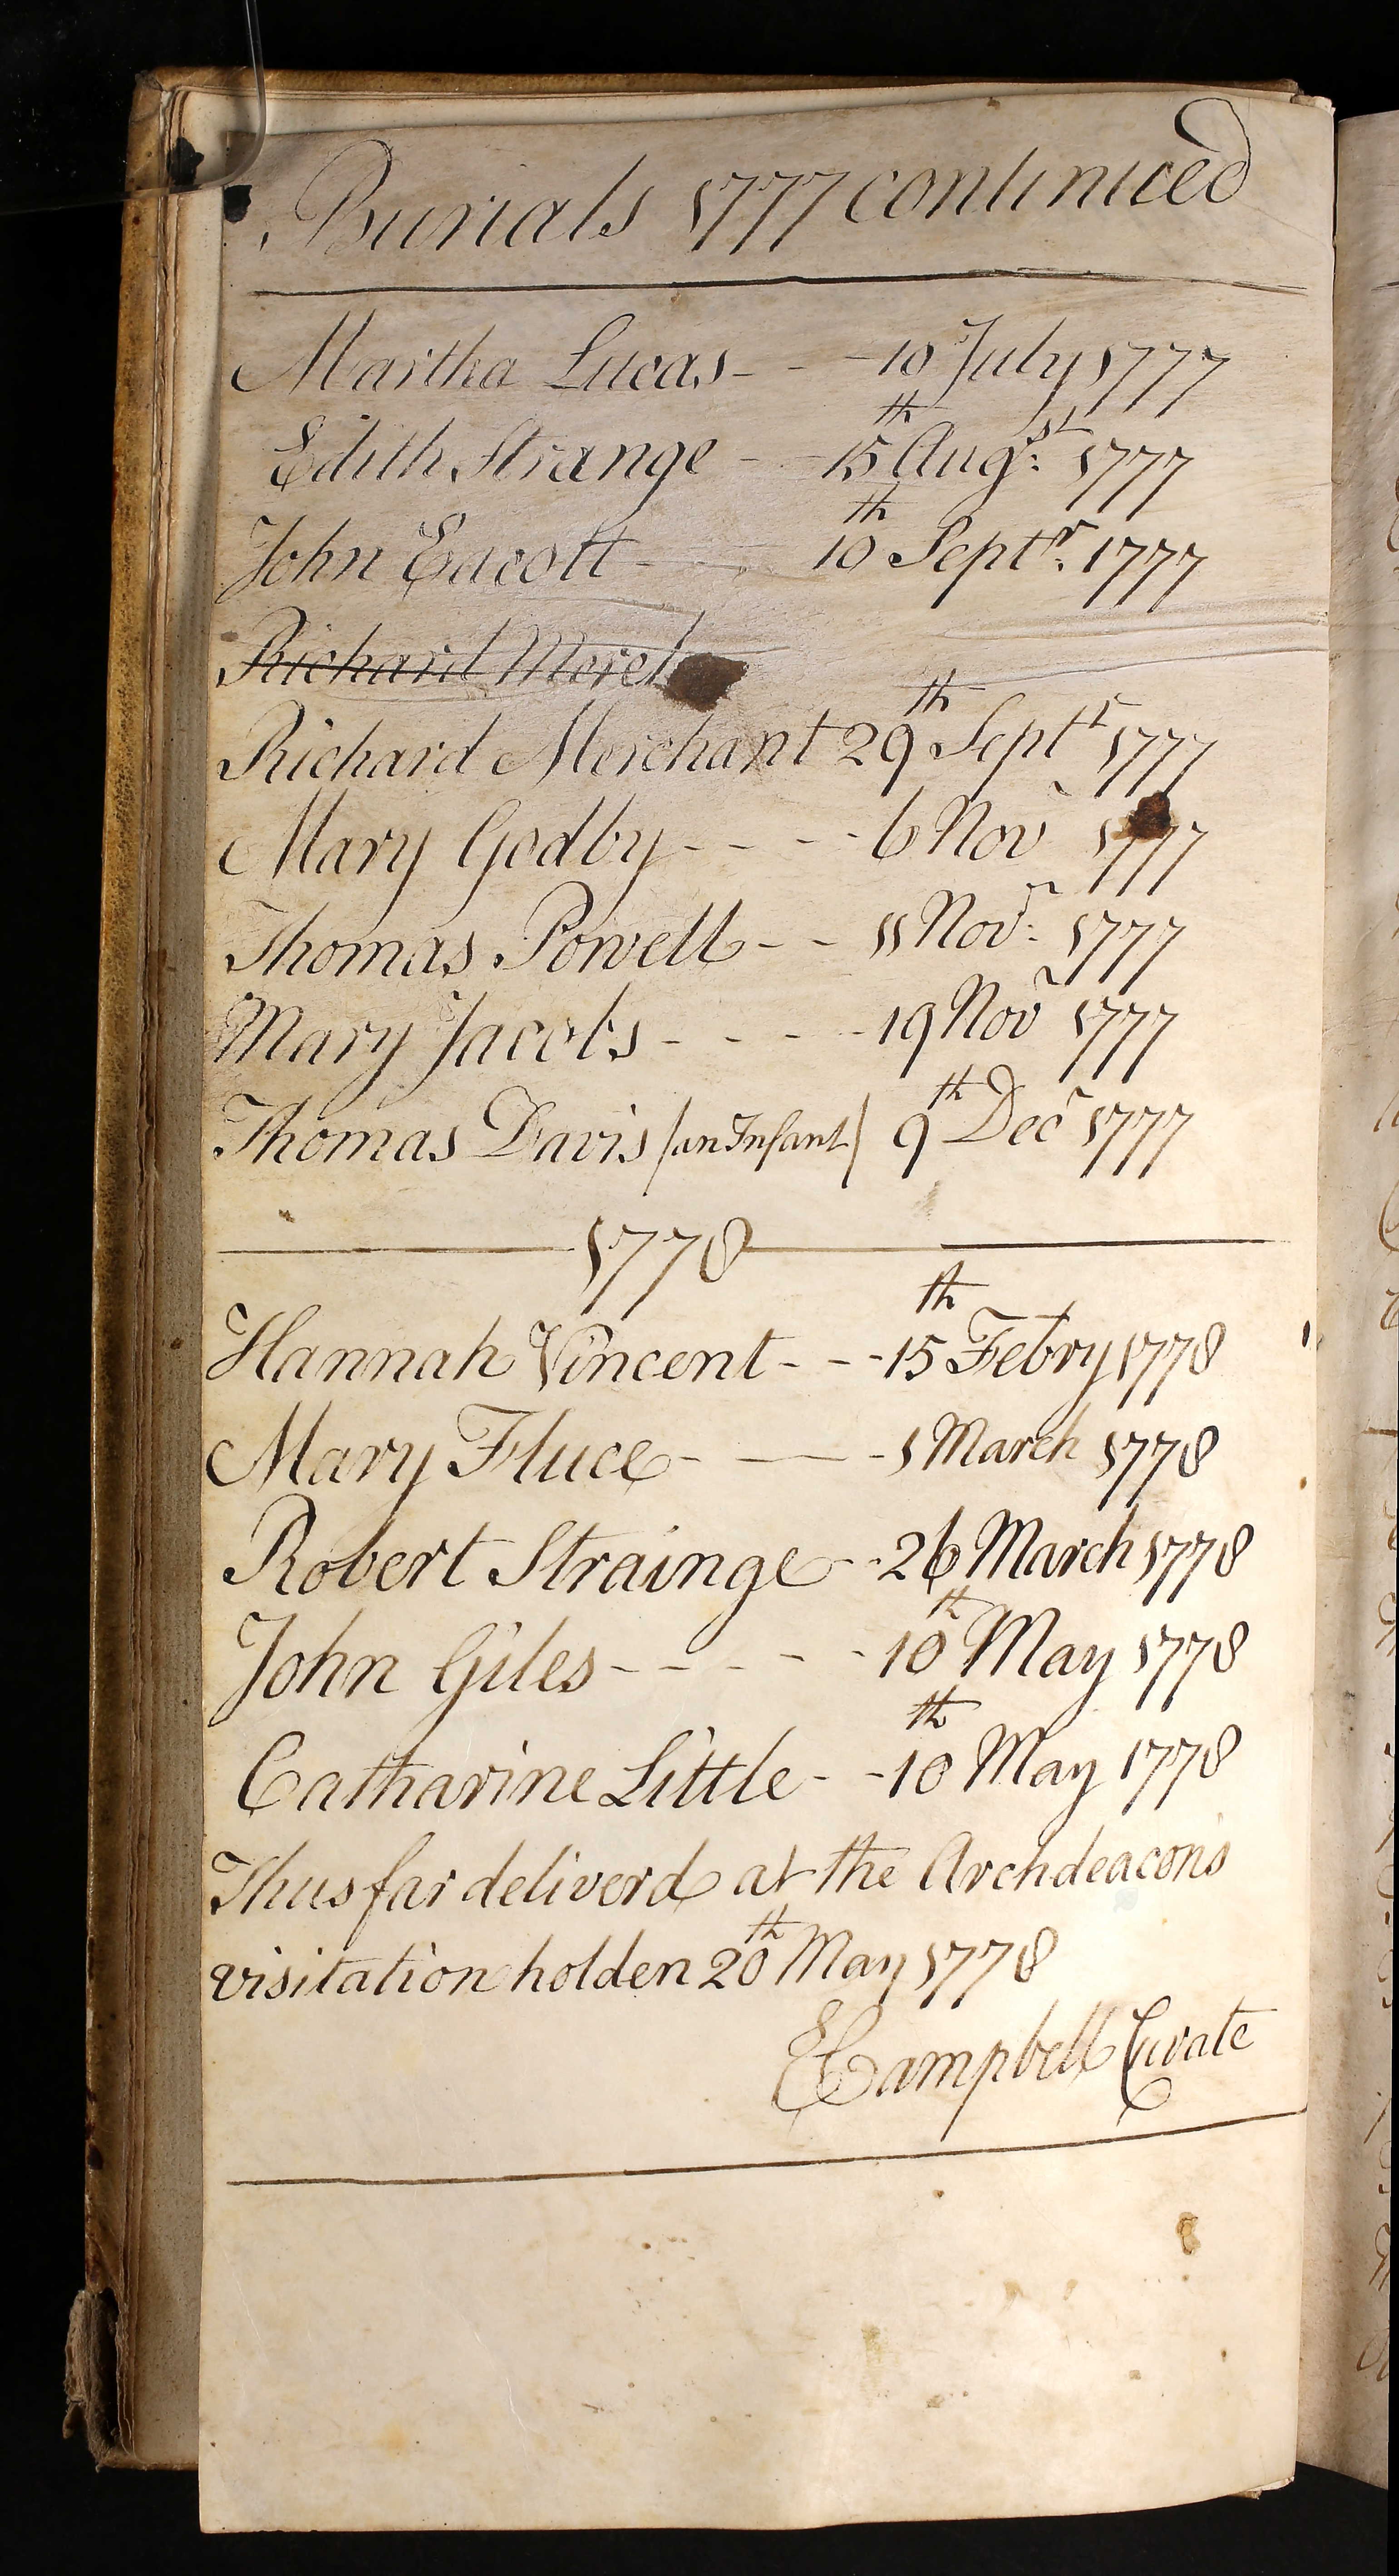 Burials 1777 continued
Martha Lucas - - - 10 July 1777
Edith Strange - - 15th Augst: 1777
John Eacott - - 10th Septr: 1777
Richard Merch
Richard Merchant 29th Septr 1777
Mary Godby - - - - 6 Novr 1777
Thomas Powell - - 11 Novr: 1777
Mary Jacobs - - - - 19 Novr 1777
Thomas Davis (an Infant) 9th Decr 1777
1778
Hannah Vincent - - - 15th Febry 1778
Mary Fluce - - - 1 March 1778
Robert Strainge - - 26 March 1778
John Giles - - - - - 10th May 1778
Catharine Little - - 10th May 1778
Thus far deliverd at the Archdeacons
visitation holden 20th May 1778
E Campbell Curate